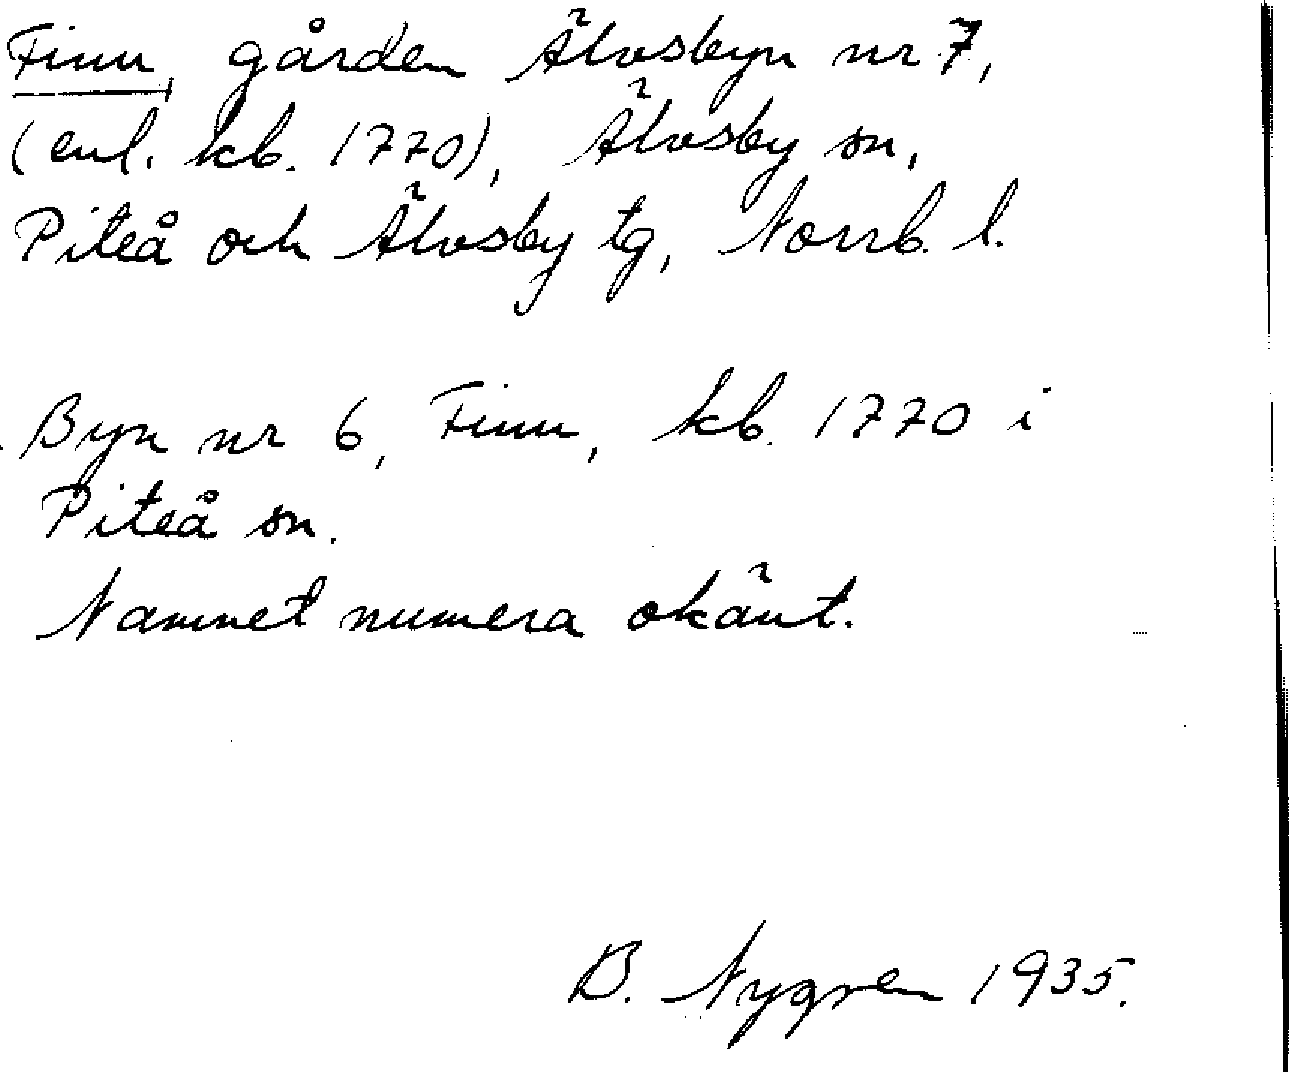 Finn, gården Älvsbyn nr 7,
(enl. kb. 1770), Älvsby sn,
Piteå och Älvsby tg, Norrb. l.
Byn nr 6, Finn, kb. 1770 i
Piteå sn.
Namnet numera okänt.
B. Nygren 1935.